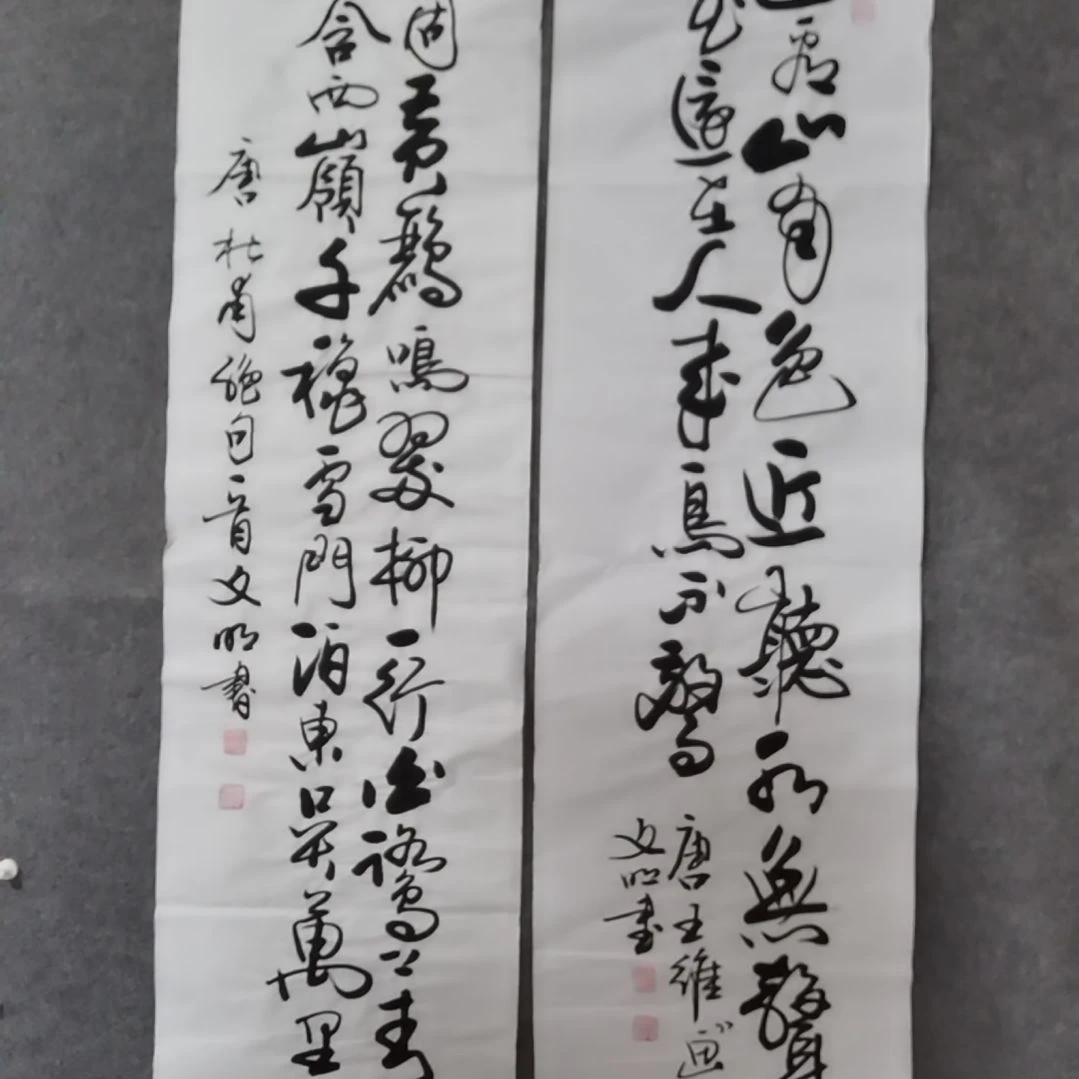 遠看山有色近聽水無聲
花還在人來鳥不驚
唐王維画
文明書
個黃鸝鳴翠柳一行白鷺上青
含西嶺千秋雪門泊東吳萬里
唐杜甫絕句一首文明書